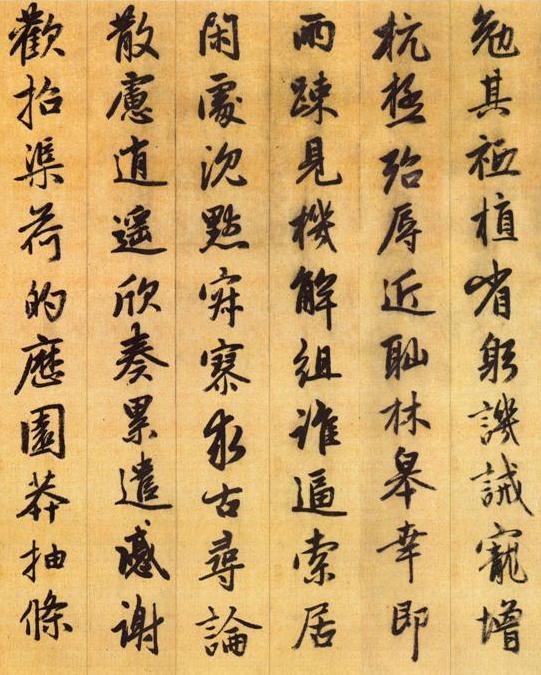 勉其祗植省躬譏誡寵增
抗極殆辱近耻林皋幸即
兩踈見機解組誰逼索居
閑處沉默寂寥求古尋論
散慮逍遙欣奏累遣慼謝
歡招渠荷的歷園莽抽條